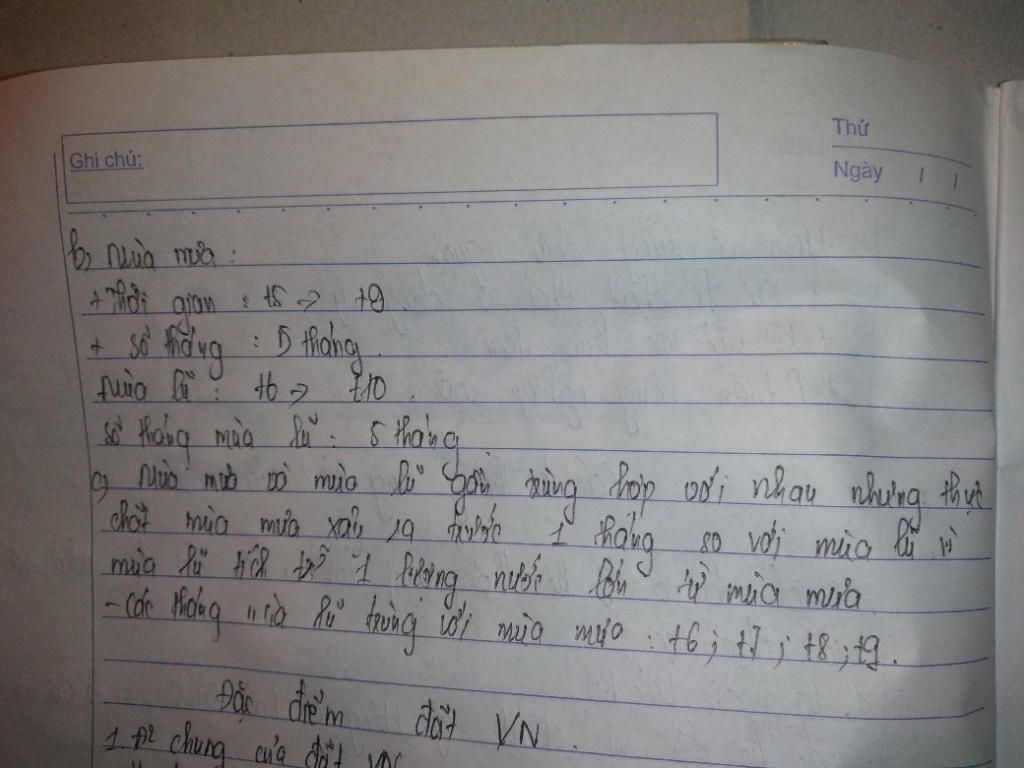 Thứ
Ghi chú:
Ngày / /
b, Mùa mưa :
+ Thời gian : t5 => t9
+ số tháng : 5 tháng.
Mùa lũ : t6 => t10.
số tháng mùa lũ : 5 tháng
c, Mùa mưa và mùa lũ gần trùng hợp với nhau nhưng thực
chất mùa mưa xảy ra trước 1 tháng so với mùa lũ vì
mùa lũ tích trữ 1 lượng nước lớn từ mùa mưa
- Các tháng mùa lũ trùng với mùa mưa : t6 ; t7 ; t8 ; t9.
Đặc điểm đất VN.
1 Đ² chung của đất VN